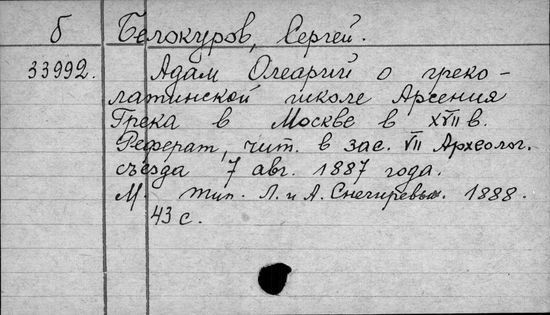 б Белокуров, Сергей.
33992. Адам Олеарий о греко-
латинской школе Арсения
Грека в Москве в XVII в.
Реферат, чит. в зас. VII Археолог.
съезда 7 авг. 1887 года.
М. Тип. Л. и А. Снегиревых. 1888.
43 с.